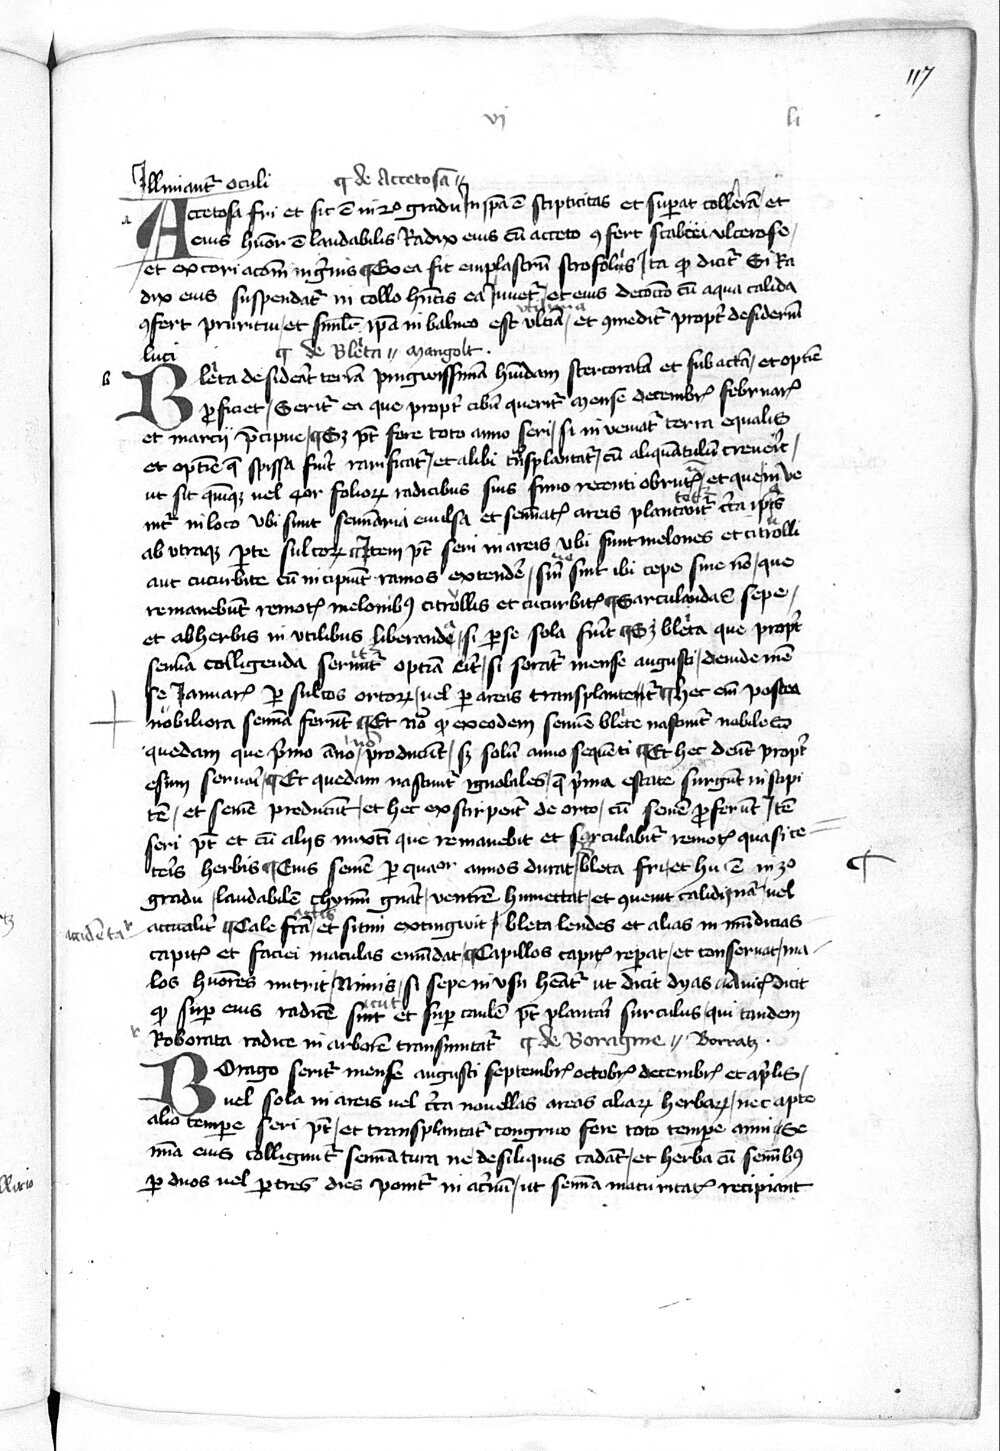 117
vi li
Illiniantr oculi ¶ de Accetosa
Accetosa fri et sic ē in 2o gradu In ipa ē stipticitas et supat collerā et
eius hūor ē laudabilis Radix eius cū acceto 9fert scabiei ulcerose
et excoriacōni in gnis ¶ Ex ea fit emplastrū scrofolis Ita qp dicitr Si Ra
dix eius suspendatr in collo hntis ea Iuvetr et eius decoctō cū aqua calida
9fert pruritui et simlr ipa in balneo est et 9meditr proptr desideriū
luti ¶ de Bleta mangolt
Bleta desideat terrā pingwissimā hūidam stercoratā et subactā et optīe
pficiet Seritr ea que proptr cibū queritr mense decembr februar
et marcij pcipue ¶ Sz pt fere toto anno seri si inveniatr terra equalis
et optīe q spissa fuit rarificatr et alibi trnsplantatr cū aliquātulū creverit
ut sit quinqz vel 4or folior radicibus suis fimo recenti obrutr et que inve
nitr in loco ubi sunt seminaria evulsa et seminatr areis plantavitr ctra ipas
ab utraqz pte sulcor Item pt seri in areis ubi sunt melones et citrolli
aut cucurbite cū incipiūt ramos extendē sint ibi cepe sive nō que
remanebūt remotr melonibus citrollis et cucurbitr ¶ Sarculandas sepe
et ab herbis inutilibus liberande si pse sola fuit ¶ Sz bleta que proptr
semīa colligenda seritr optīa erit si seratr mense augusti deinde mē
se Ianuar p sulcos ortor vel p areas transplantentr ¶ hec eīm postea
nobiliora semīa ferunt ¶ Et nō qp ex eodem semīe blete nascuntr nobiles
quedam que pmo āno nō producūt sz solū anno sequēti ¶ Et hec debēt proptr
esum servari ¶ Et quedam nascuntr ignobiles q pma estate surgūt in stipi
tē et semē producūt et hec exstirpentr de orto cū semē pferunt Itē
seri pt et cū aliis mixtī que remanebit et sarculabitr remotr quasi ce
teris herbis ¶ Eius semē p quaor annos durat bleta fri et hu ē in 3o
gradu laudabilē chymū gnat ventrē humectat et 9venit calidi nat vel
accidētar
actualitr ¶ Cale fcā et sitim extingwit bleta lendes et alias inmūdicias
capitr et faciei maculas emūdat ¶ Capillos capitr repat et conservat ma
los hūores nutrit Nimis si sepe in usu hēatr ut dicit dyas Avic dicit
qp sup eius radicē sint et sup caulē pt plantari surculus qui tandem
Roborata radice in arborē transmutatr ¶ de Boragine Borratz
Borago seritr mense augusti septembr octobr decembr et aplis
vel sola in areis vel ctra novellas areas aliar herbar nec apte
alio tempe seri pt et transplantatr congruo fere toto tempe anni Se
mīa eius colligunitr semīatura ne de siliquis cadāt et herba cū semībus
p duos vel p tres dies ponitr in acvū ut semīa maturitatr recipiant